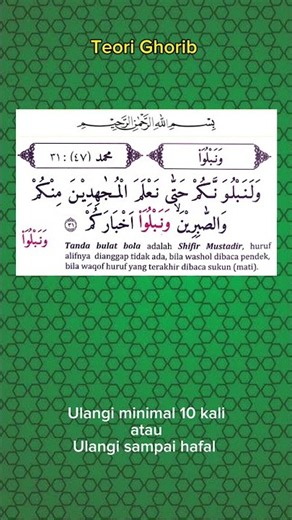 Teori Ghorib
بِسْمِ اللّٰهِ الرَّحْمٰنِ الرَّحِيْمِ
وَنَبْلُوَا۟ محمد (٤٧) : ٣١
وَلَنَبْلُوَنَّكُمْ حَتّٰى نَعْلَمَ الْمُجٰهِدِيْنَ مِنْكُمْ
وَالصّٰبِرِيْنَۙ وَنَبْلُوَا۟ اَخْبَارَكُمْ ۝٣١
وَنَبْلُوَا۟
Tanda bulat bola adalah Shifir Mustadir, huruf
alifnya dianggap tidak ada, bila washol dibaca pendek,
bila waqof huruf yang terakhir dibaca sukun (mati).
Ulangi minimal 10 kali
atau
Ulangi sampai hafal